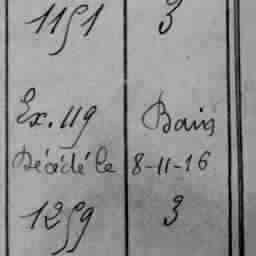 1151 3
Ex. 119 Bain
Décédé le 8-11-16
1259 3